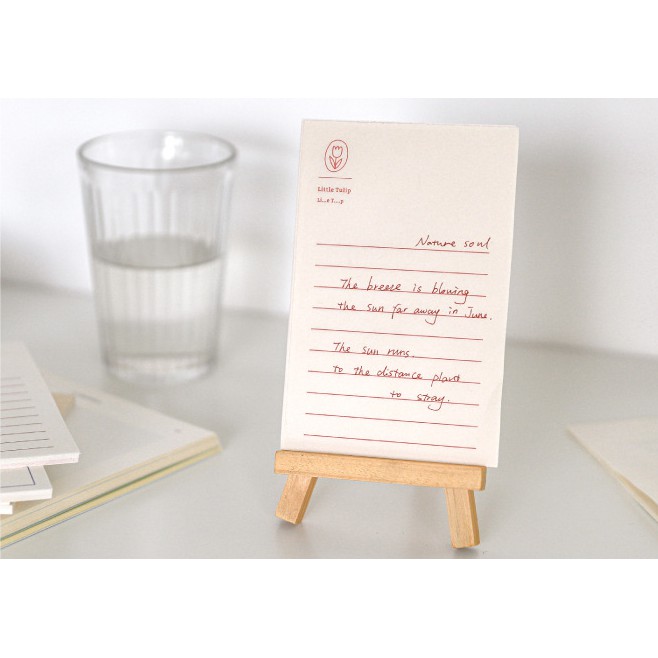 Little Tulip
Li...e T....p
Nature soul
The breeze is blowing
the sun far away in June.
The sun runs.
to the distance plant
to stray.